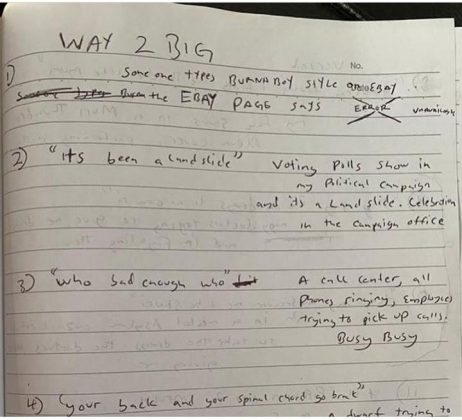 WAY 2 BIG
No.
1) Someone types BURNABOY STYLE on EBAY.
the EBAY PAGE says ERROR unavailable
2) "its been a landslide" Voting Polls show in
my Political Campaign
and its a Landslide. Celebration
in the campaign office
3) "who bad enough who" A call center, all
Phones ringing, Employees
trying to pick up calls.
Busy Busy
4) "your back and your spinal chord go break"
a dwarf trying to